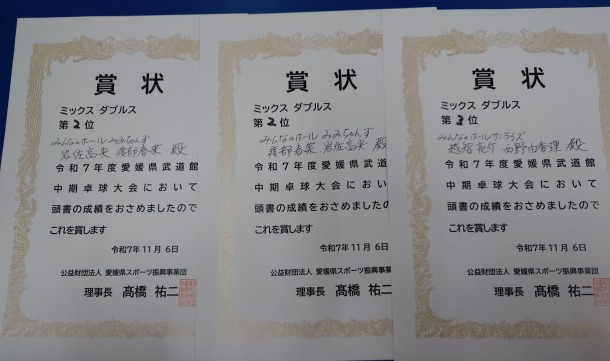 賞状
ミックス ダブルス
第2位
みんなのホール みみちゃんず
岩佐高央 渡部春菜 殿
令和7年度愛媛県武道館
中期卓球大会において
頭書の成績をおさめましたので
これを賞します
令和7年11月 6日
公益財団法人 愛媛県スポーツ振興事業団
理事長 髙橋 祐二
賞状
ミックス ダブルス
第2位
みんなのホール みみちゃんず
渡部春菜 岩佐高央 殿
令和7年度愛媛県武道館
中期卓球大会において
頭書の成績をおさめましたので
これを賞します
令和7年11月 6日
公益財団法人 愛媛県スポーツ振興事業団
理事長 髙橋 祐二
賞状
ミックス ダブルス
第3位
みんなのホール サンライズ
越智 西野由香理 殿
令和7年度愛媛県武道館
中期卓球大会において
頭書の成績をおさめましたので
これを賞します
令和7年11月 6日
公益財団法人 愛媛県スポーツ振興事業団
理事長 髙橋 祐二